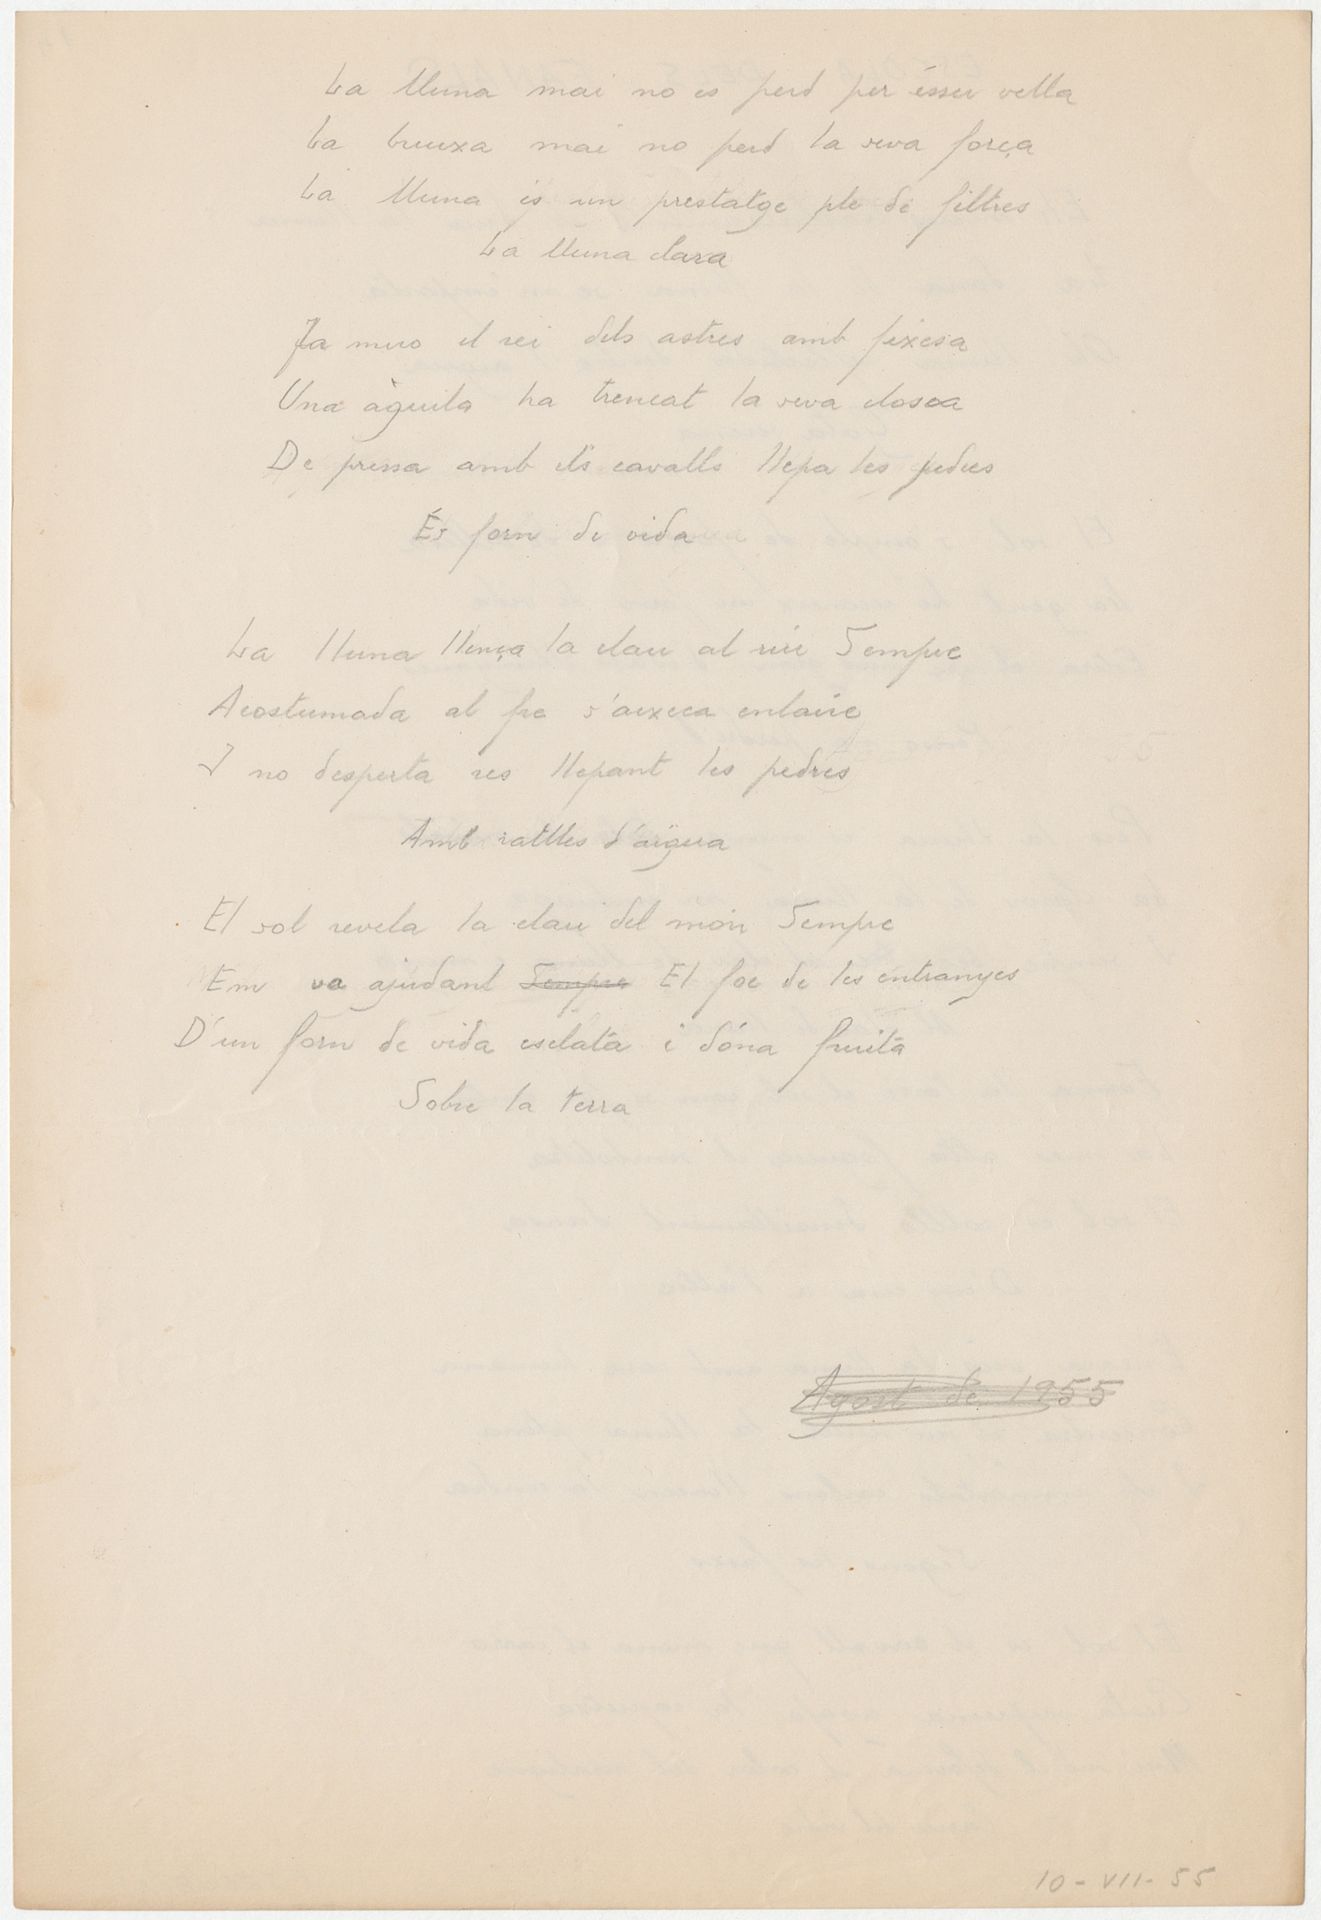 La lluna mai no es perd per ésser vella
La bruixa mai no perd la seva força
La lluna és un prestatge ple de filtres
La lluna clara
Ja miro el rei dels astres amb fixesa
Una àguila ha trencat la seva closca
De pressa amb els cavalls llepa les pedres
És forn de vida
La lluna llença la clau al riu Sempre
Acostumada al fre s'aixeca enlaire
I no desperta res llepant les pedres
Amb ratlles d'aigua
El sol revela la clau del món Sempre
Em va ajudant Sempre El foc de les entranyes
D'un forn de vida esclata i dóna fruita
Sobre la terra
Agost de 1955
10-VII-55